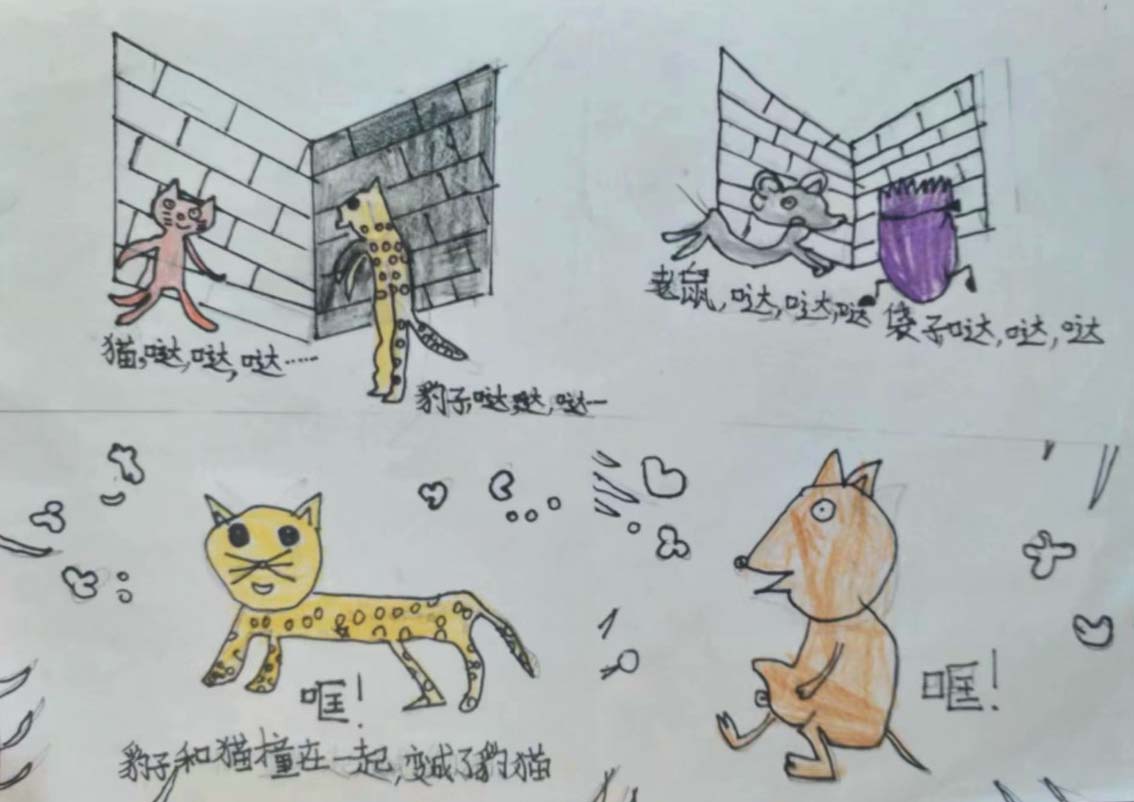 猫,哒,哒,哒……
豹子,哒,哒,哒…
老鼠,哒,哒,哒
袋子哒,哒,哒
哐!
豹子和猫撞在一起,变成了豹猫
哐!